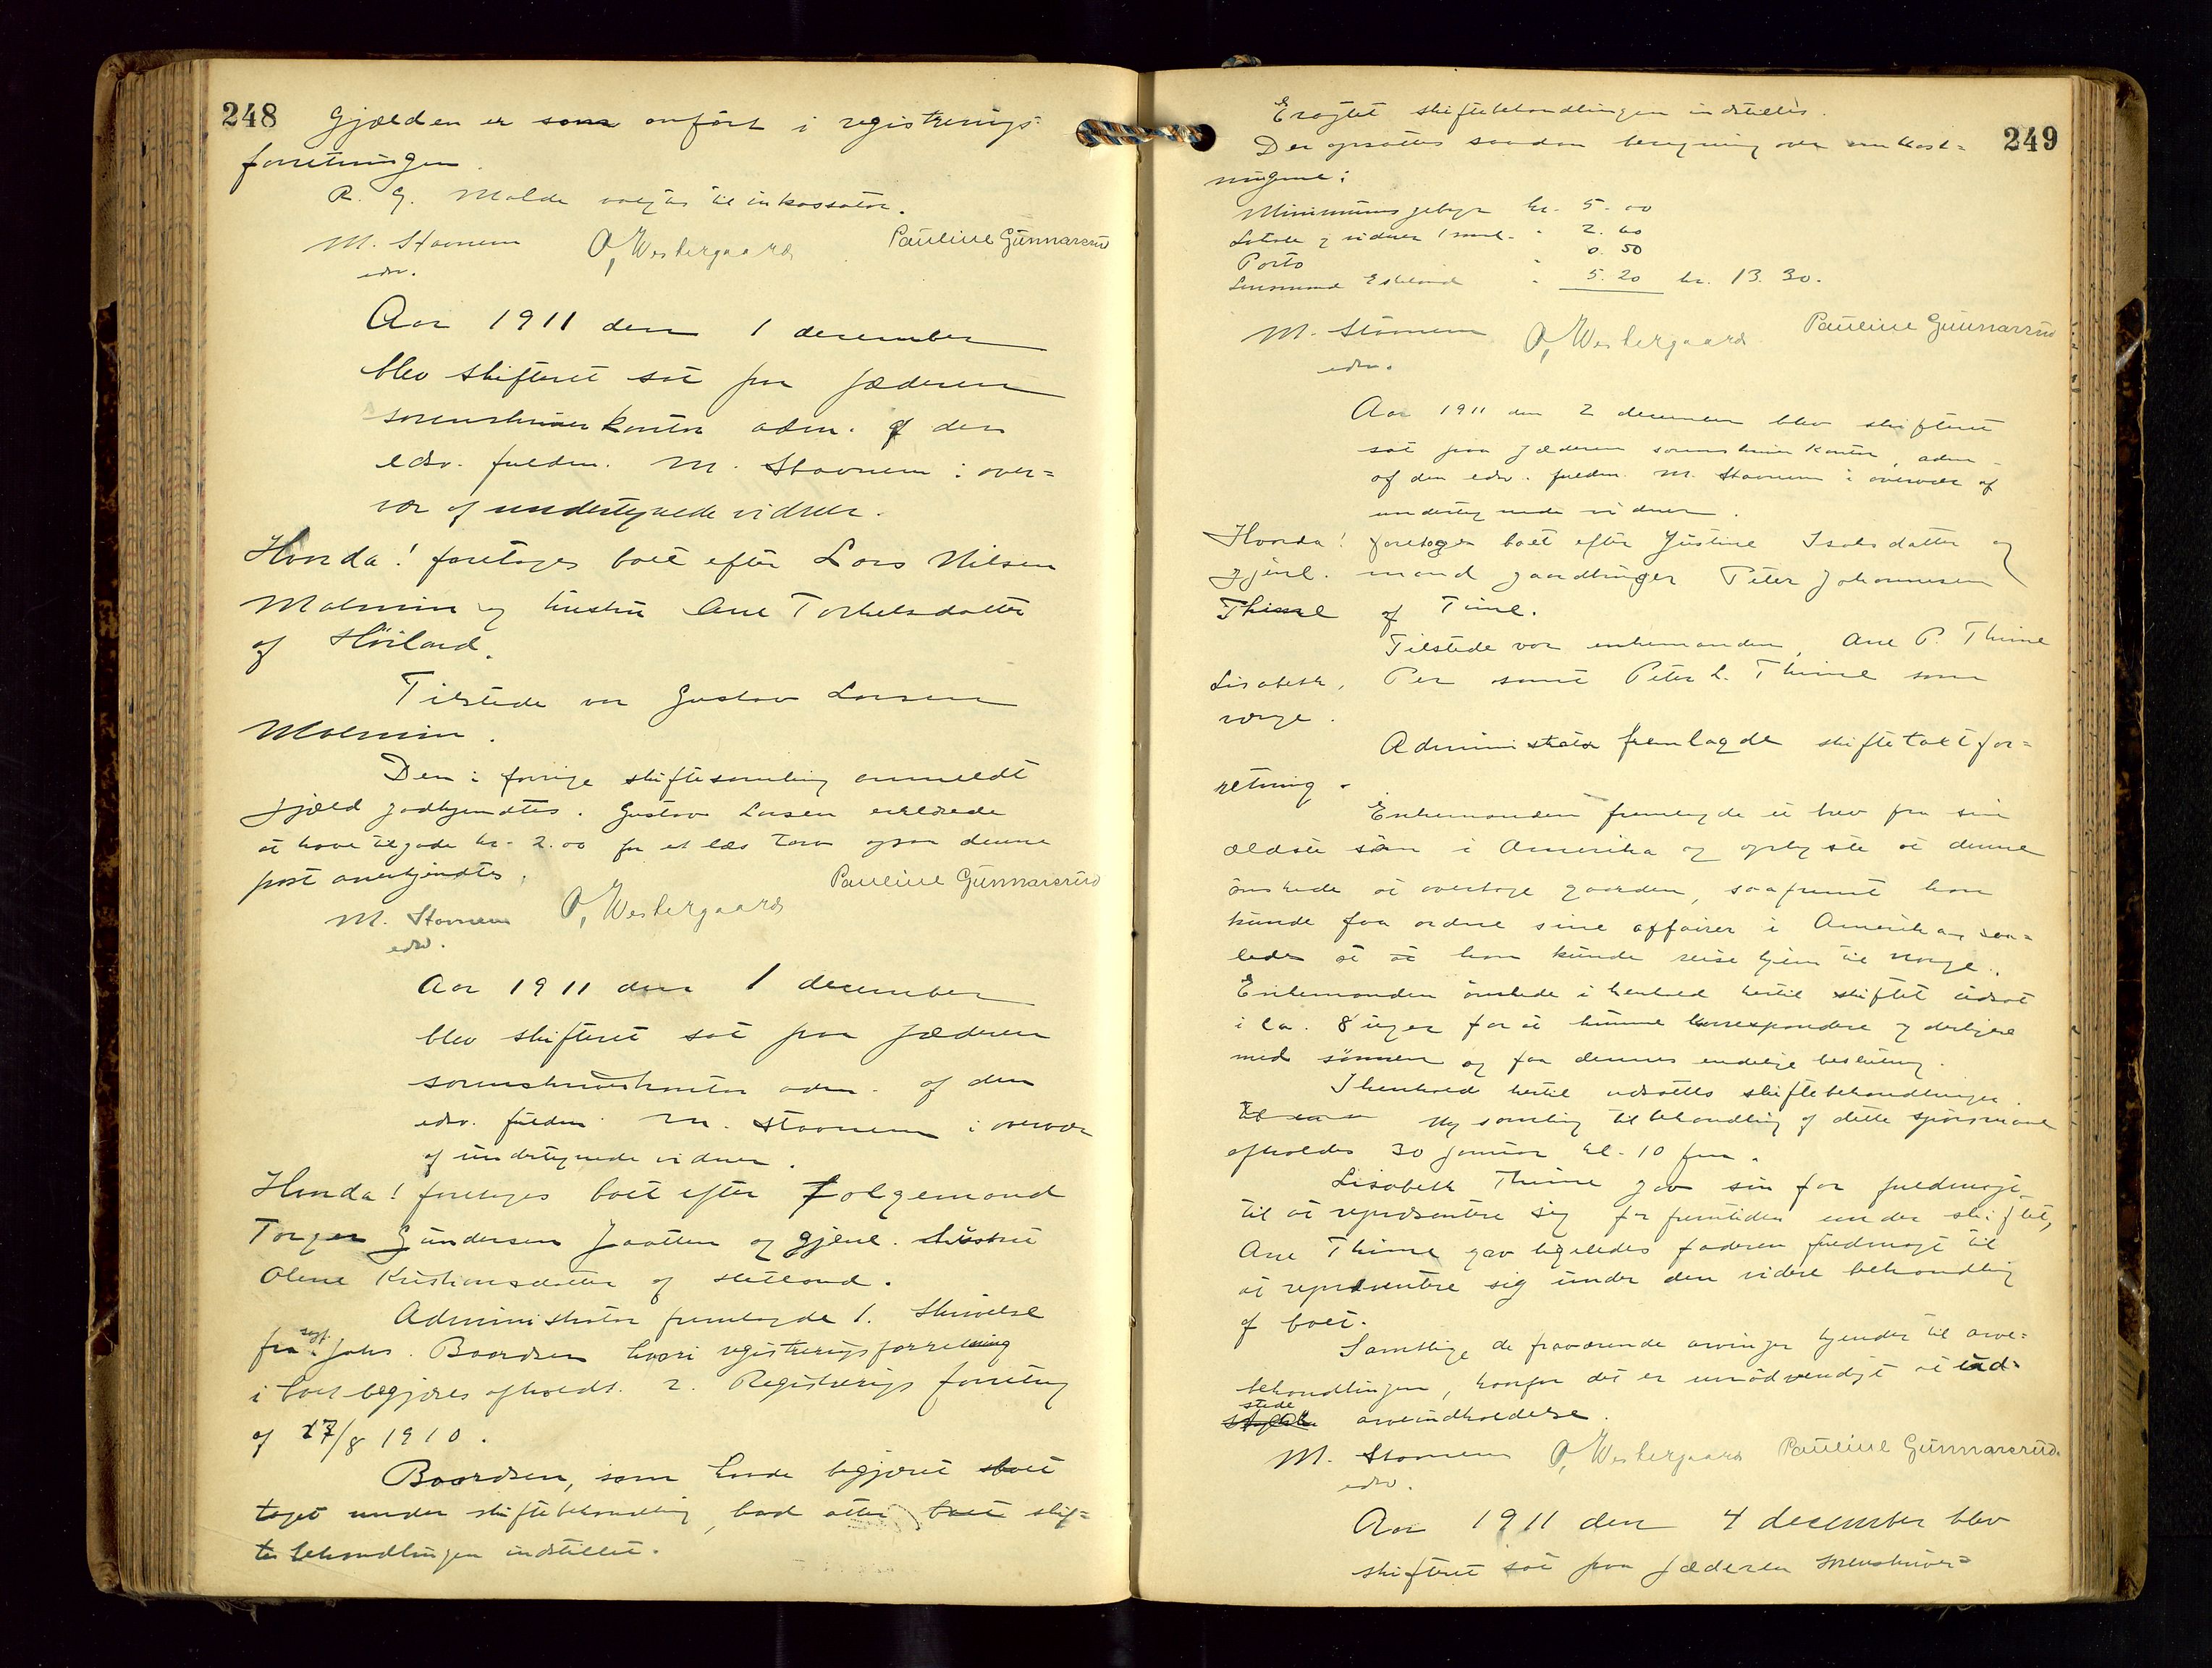 248
Gjælden er som anført i registrerings-
forretningen.
R. G. Molde valgtes til inkassator.
M. Stavnem O, Westergaard Pauline Gunnarsrud
edsv.
Aar 1911 den 1 december
blev skifteret sat paa Jæderen
sorenskriverkontor adm. af den
edsv. fuldm. M. Stavnem i over=
vær af undertegnede vidner.
Hvorda! foretages boet efter Lars Nilsen
Malmin og hustru Ane Torkelsdatter
af Høiland.
Tilstede var Gustav Larsen
Malmin.
Den i forrige skiftesamling anmeldt
gjæld godkjendtes. Gustav Larsen erklærede
at have tilgode kr. 2.00 for et læs torv ogsaa denne
post anerkjendtes.
M. Stavnem O, Westergaard Pauline Gunnarsrud
edsv.
Aar 1911 den 1 december
blev skifteret sat paa Jæderen
sorenskriverkontor adm. af den
edsv. fuldm. M. Stavnem i overvær
af undertegnede vidner.
Hvorda! foretages boet efter Folgemand
Torger Gundersen Jaatten og gjenl. hustru
Olene Kristiansdatter af Hetland.
Administrator fremlagde 1. Skrivelse
fra sagf. Johs. Baardsen hvori registreringsforretning
i boet begjæres afholdt. 2. Registrerings forretning
af 27/8 1910.
Baardsen, som havde begjæret boet
taget under skiftebehandling, bad atter boet skif=
tebehandlingen indstillet.
249
Eragtet skiftebehandlingen indstilles.
Der opsattes saadan beregning over omkost=
ningene:
Minimumsgebyr kr. 5.00
Lokale og vidner 1 saml. " 2.60
Porto " 0.50
Lensmand Eskeland " 5.20 kr. 13.30.
M. Stavnem O, Westergaard Pauline Gunnarsrud
edsv.
Aar 1911 den 2 december blev skifteret
sat paa Jæderen sorenskriverkontor, adm
af den edsv. fuldm. M. Stavnem i overvær af
undertegnede vidner.
Hvorda! foretoges boet efter Justine Isaksdatter og
gjenl. mand gaardbruger Peter Johannesen
Thime af Time.
Tilstede var enkemanden, Ane P. Thime
Lisabeth, Per samt Peter L. Thime som
verge.
Administrator fremlagde skiftetaktfor=
retning.
Enkemanden fremlagde et brev fra sin
ældste søn i Amerika og oplyste at denne
ønskede at overtage gaarden, saafremt han
kunde faa ordne sine affairer i Amerika saa=
ledes at at han kunde reise hjem til Norge.
Enkemanden ønskede i henhold hertil skiftet udsat
i ca. 8 uger for at kunne korrespondere yderligere
med sønnen og faa dennes endelige beslutning.
I henhold hertil udsattes skiftebehandlingen.
Ny samling til behandling af dette spørsmaal
afholdes 30 januar kl. 10 fm.
Lisabeth Thime gav sin far fuldmagt
til at repræsentere sig for fremtiden under skiftet,
Ane Thime gav ligeledes faderen fuldmagt til
at repræsentere sig under den videre behandling
af boet.
Samtlige de fraværende arvinger kjender til arve=
behandlingen, hvorfor det er unødvendigt at ud-
stede arveindkaldelse.
M. Stavnem O, Westergaard Pauline Gunnarsrud
edsv.
Aar 1911 den 4 december blev
skifteret sat paa Jæderen sorenskriver=